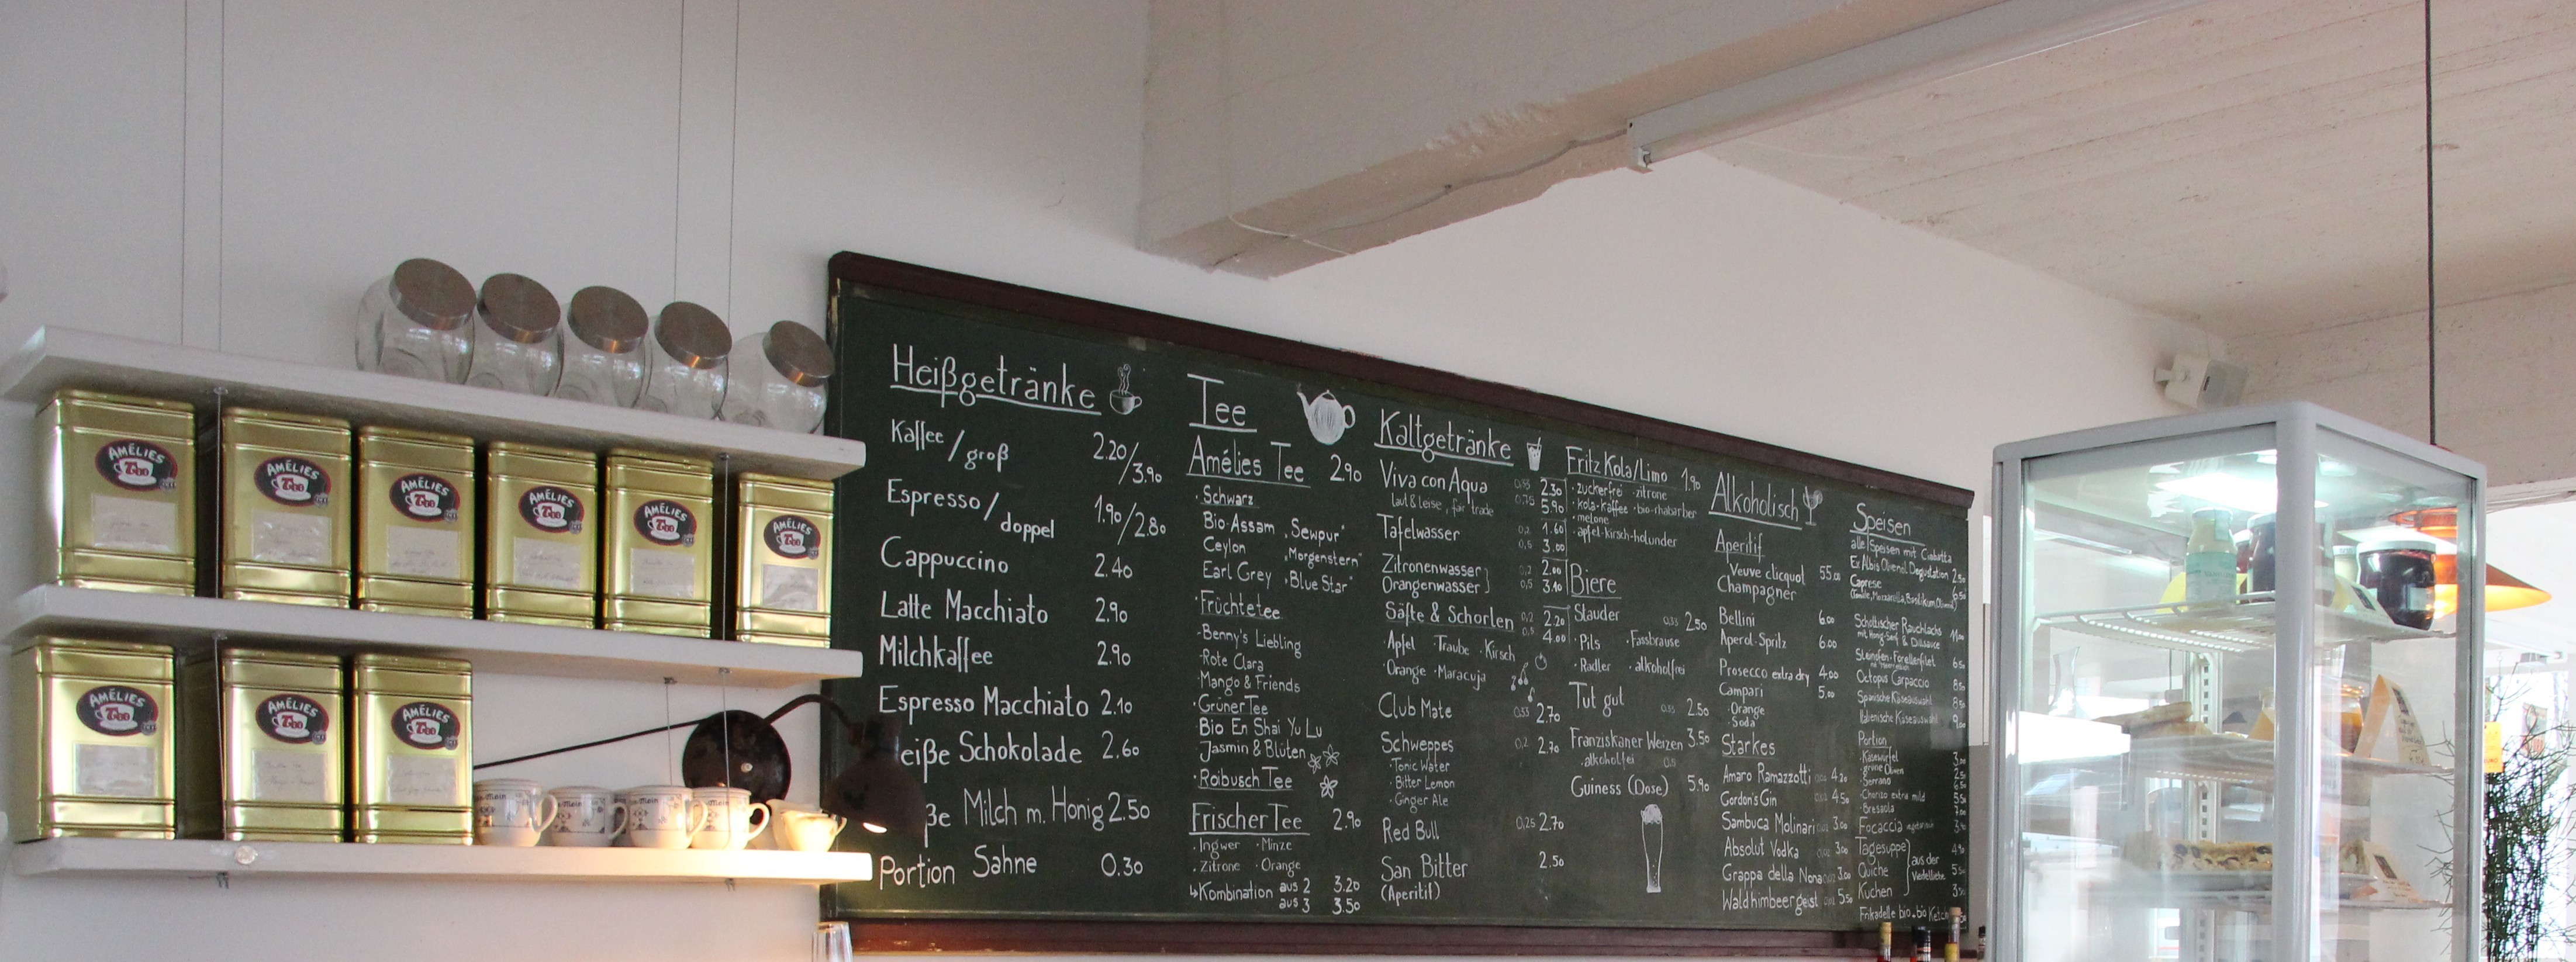 AMÉLIES
Tee
AMÉLIES
Tee
AMÉLIES
Tee
AMÉLIES
Tee
AMÉLIES
Tee
AMÉLIES
Tee
AMÉLIES
Tee
AMÉLIES
Tee
AMÉLIES
Tee
Heißgetränke
Kaffee/groß 2.20/3.90
Espresso/doppel 1.90/2.80
Cappuccino 2.40
Latte Macchiato 2.90
Milchkaffee 2.90
Espresso Macchiato 2.10
eiße Schokolade 2.60
ße Milch m. Honig 2.50
Portion Sahne 0.30
Tee
Amélies Tee 2.90
· Schwarz
Bio-Assam „Sewpur"
Ceylon „Morgenstern"
Earl Grey „Blue Star"
· Früchtetee
-Benny's Liebling
-Rote Clara
-Mango & Friends
· Grüner Tee
Bio En Shai Yu Lu
Jasmin & Blüten
· Roibusch Tee
Frischer Tee 2.90
· Ingwer · Minze
· Zitrone · Orange
↳Kombination aus 2 3.20
aus 3 3.50
Kaltgetränke
Viva con Aqua 2.30
laut & leise, fair trade 0,75 5.90
Tafelwasser 0,2 1.60
0,5 3.00
Zitronenwasser 0,2 2.00
Orangenwasser 0,5 3.10
Säfte & Schorlen 0,2 2.20
4.00
· Apfel · Traube · Kirsch
· Orange · Maracuja
Club Mate 2.70
Schweppes 0,2 2.70
· Tonic Water
· Bitter Lemon
· Ginger Ale
Red Bull 0,25 2.70
San Bitter 2.50
(Aperitif)
Fritz Kola/Limo 1.90
· zuckerfrei · zitrone
· kola-kaffee · bio-rhabarber
· melone
· apfel-kirsch-holunder
Biere
Stauder 0,33 2.50
· Pils · Fassbrause
· Radler · alkoholfrei
Tut gut 0,33 2.50
Franziskaner Weizen 3.50
· alkoholfrei 0,5
Guiness (Dose) 5.90
Alkoholisch
Aperitif
Veuve clicquot 55.00
Champagner
Bellini 6.00
Aperol-Spritz 6.00
Prosecco extra dry 4.00
Campari 5.00
· Orange
· Soda
Starkes
Amaro Ramazzotti 4.20
Gordon's Gin 4.50
Sambuca Molinari 3.00
Absolut Vodka 3.00
Grappa della Nona 3.00
Waldhimbeergeist 5.50
Speisen
alle Speisen mit Ciabatta
Ex Albis Olivenöl Degustation
Caprese
(Tomate, Mozzarella, Basilikum, Olivenöl)
Schottischer Rauchlachs
mit Honig-Senf & Dillsauce
Steinofen-Forellenfilet
Octopus Carpaccio
Spanische Käseauswahl
Italienische Käseauswahl
Portion
· Käsewürfel
· grüne Oliven
· Serrano
· Chorizo extra mild
· Bresaola
Focaccia
Tagessuppe
Quiche aus der
Kuchen
Frikadelle bio